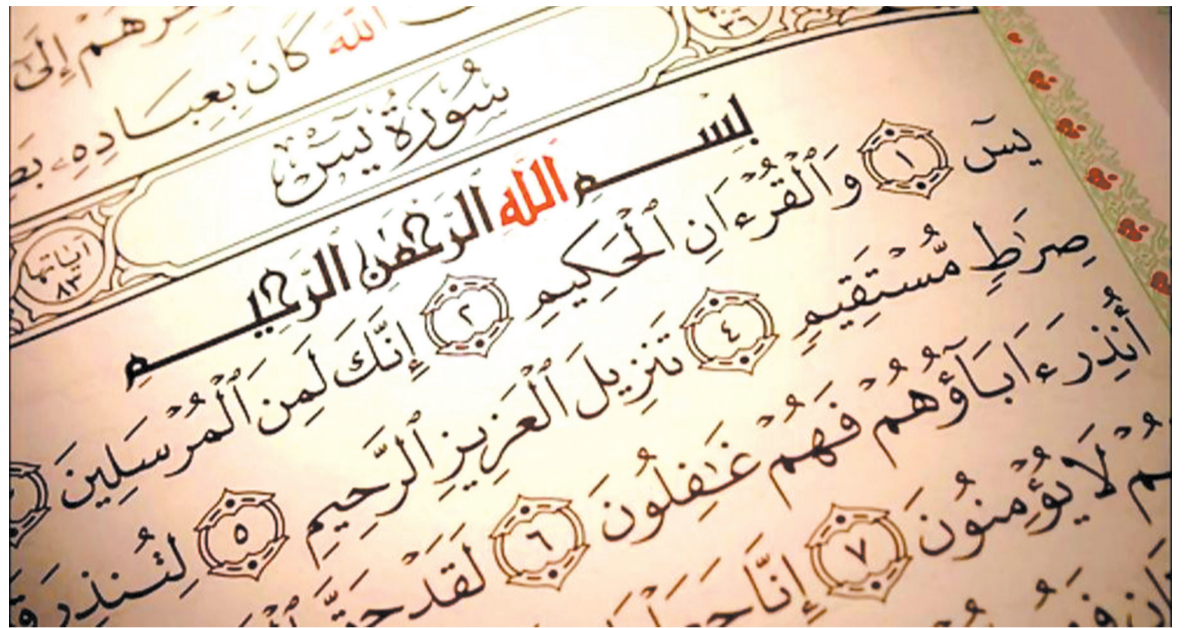 إِلَىٰ
ٱللَّهَ كَانَ بِعِبَادِهِۦ
سُورَةُ يسٓ
ءاياتها ٨٣
بِسْمِ اللهِ الرَّحْمٰنِ الرَّحِيمِ
يسٓ ١ وَٱلْقُرْءَانِ ٱلْحَكِيمِ ٢ إِنَّكَ لَمِنَ ٱلْمُرْسَلِينَ
صِرَٰطٍ مُّسْتَقِيمٍ ٤ تَنزِيلَ ٱلْعَزِيزِ ٱلرَّحِيمِ ٥ لِتُنذِرَ
أُنذِرَ ءَابَآؤُهُمْ فَهُمْ غَٰفِلُونَ ٦ لَقَدْ حَقَّ
لَا يُؤْمِنُونَ ٧ إِنَّا